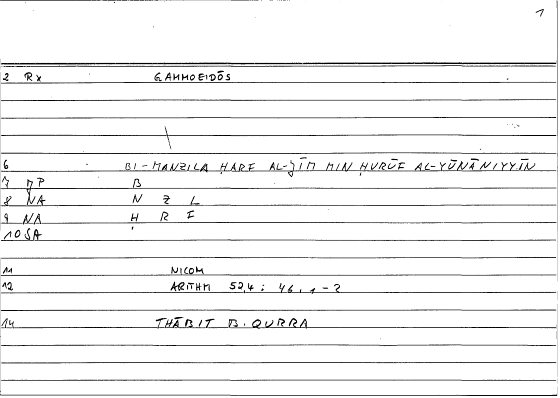 1
2 Rx GAMMOEIDŌS
6 BI-MANZILA ḤARF AL-ǦĪM MIN ḤURŪF AL-YŪNĀNIYYĪN
7 ȷP B
8 NA N Z L
9 NA Ḥ R F
10 SA
11 NICOM
12 ARITHM 52,4 : 46,1-2
14 THĀBIT B. QURRA